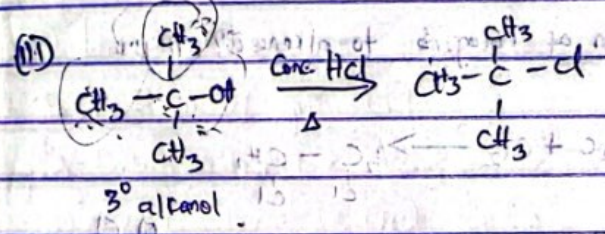 (iii) CH₃ CH₃
CH₃ - C - OH Conc HCl CH₃ - C - Cl
CH₃ Δ CH₃
3° alkanol